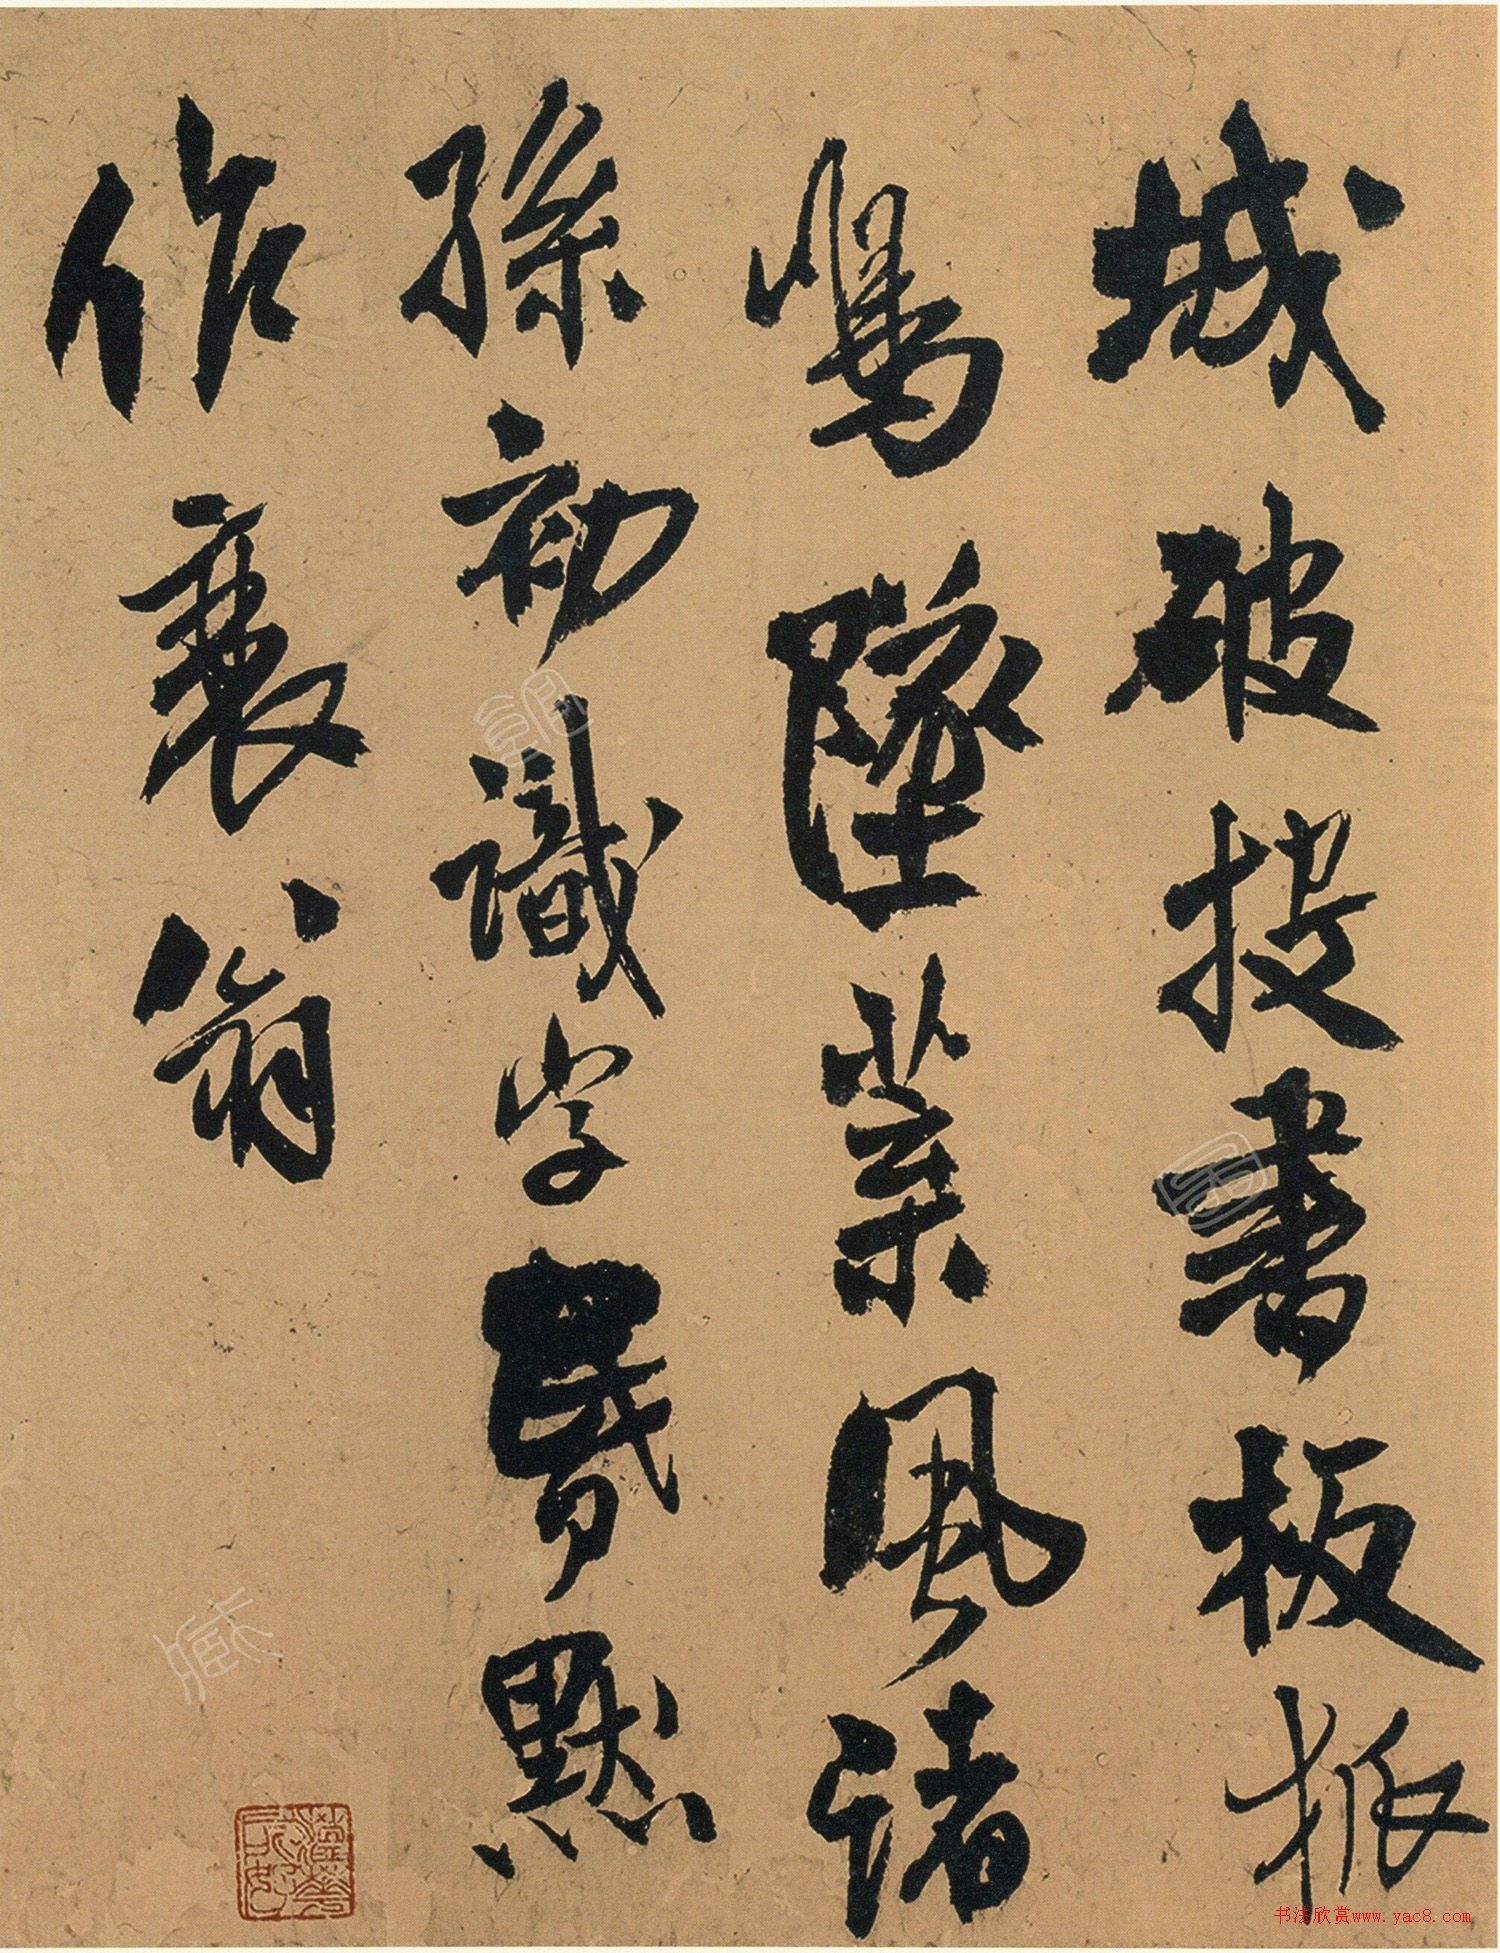 城破投書板
鳴墜葉風諸
孫初識字 默
作衰翁
书法欣赏www.yac8.com